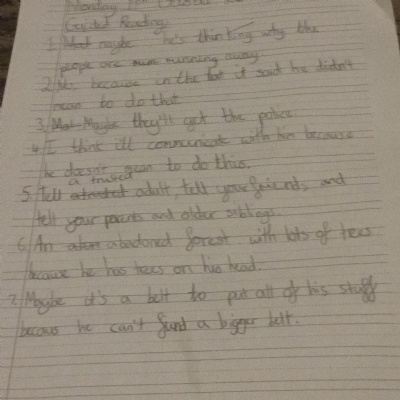 Monday
Guided Reading
1. Maybe he's thinking why the
people are running away.
2. No because in the text it said he didn't
mean to do that
3. Maybe they'll get the police.
4. I think i'll communicate with him because
he doesn't mean to do this.
5. Tell a trusted adult, tell your friends, and
tell your parents and older siblings.
6. An abadoned forest with lots of trees
because he has trees on his head.
7. Maybe it's a belt to put all of his stuff
becaus he can't find a bigger belt.